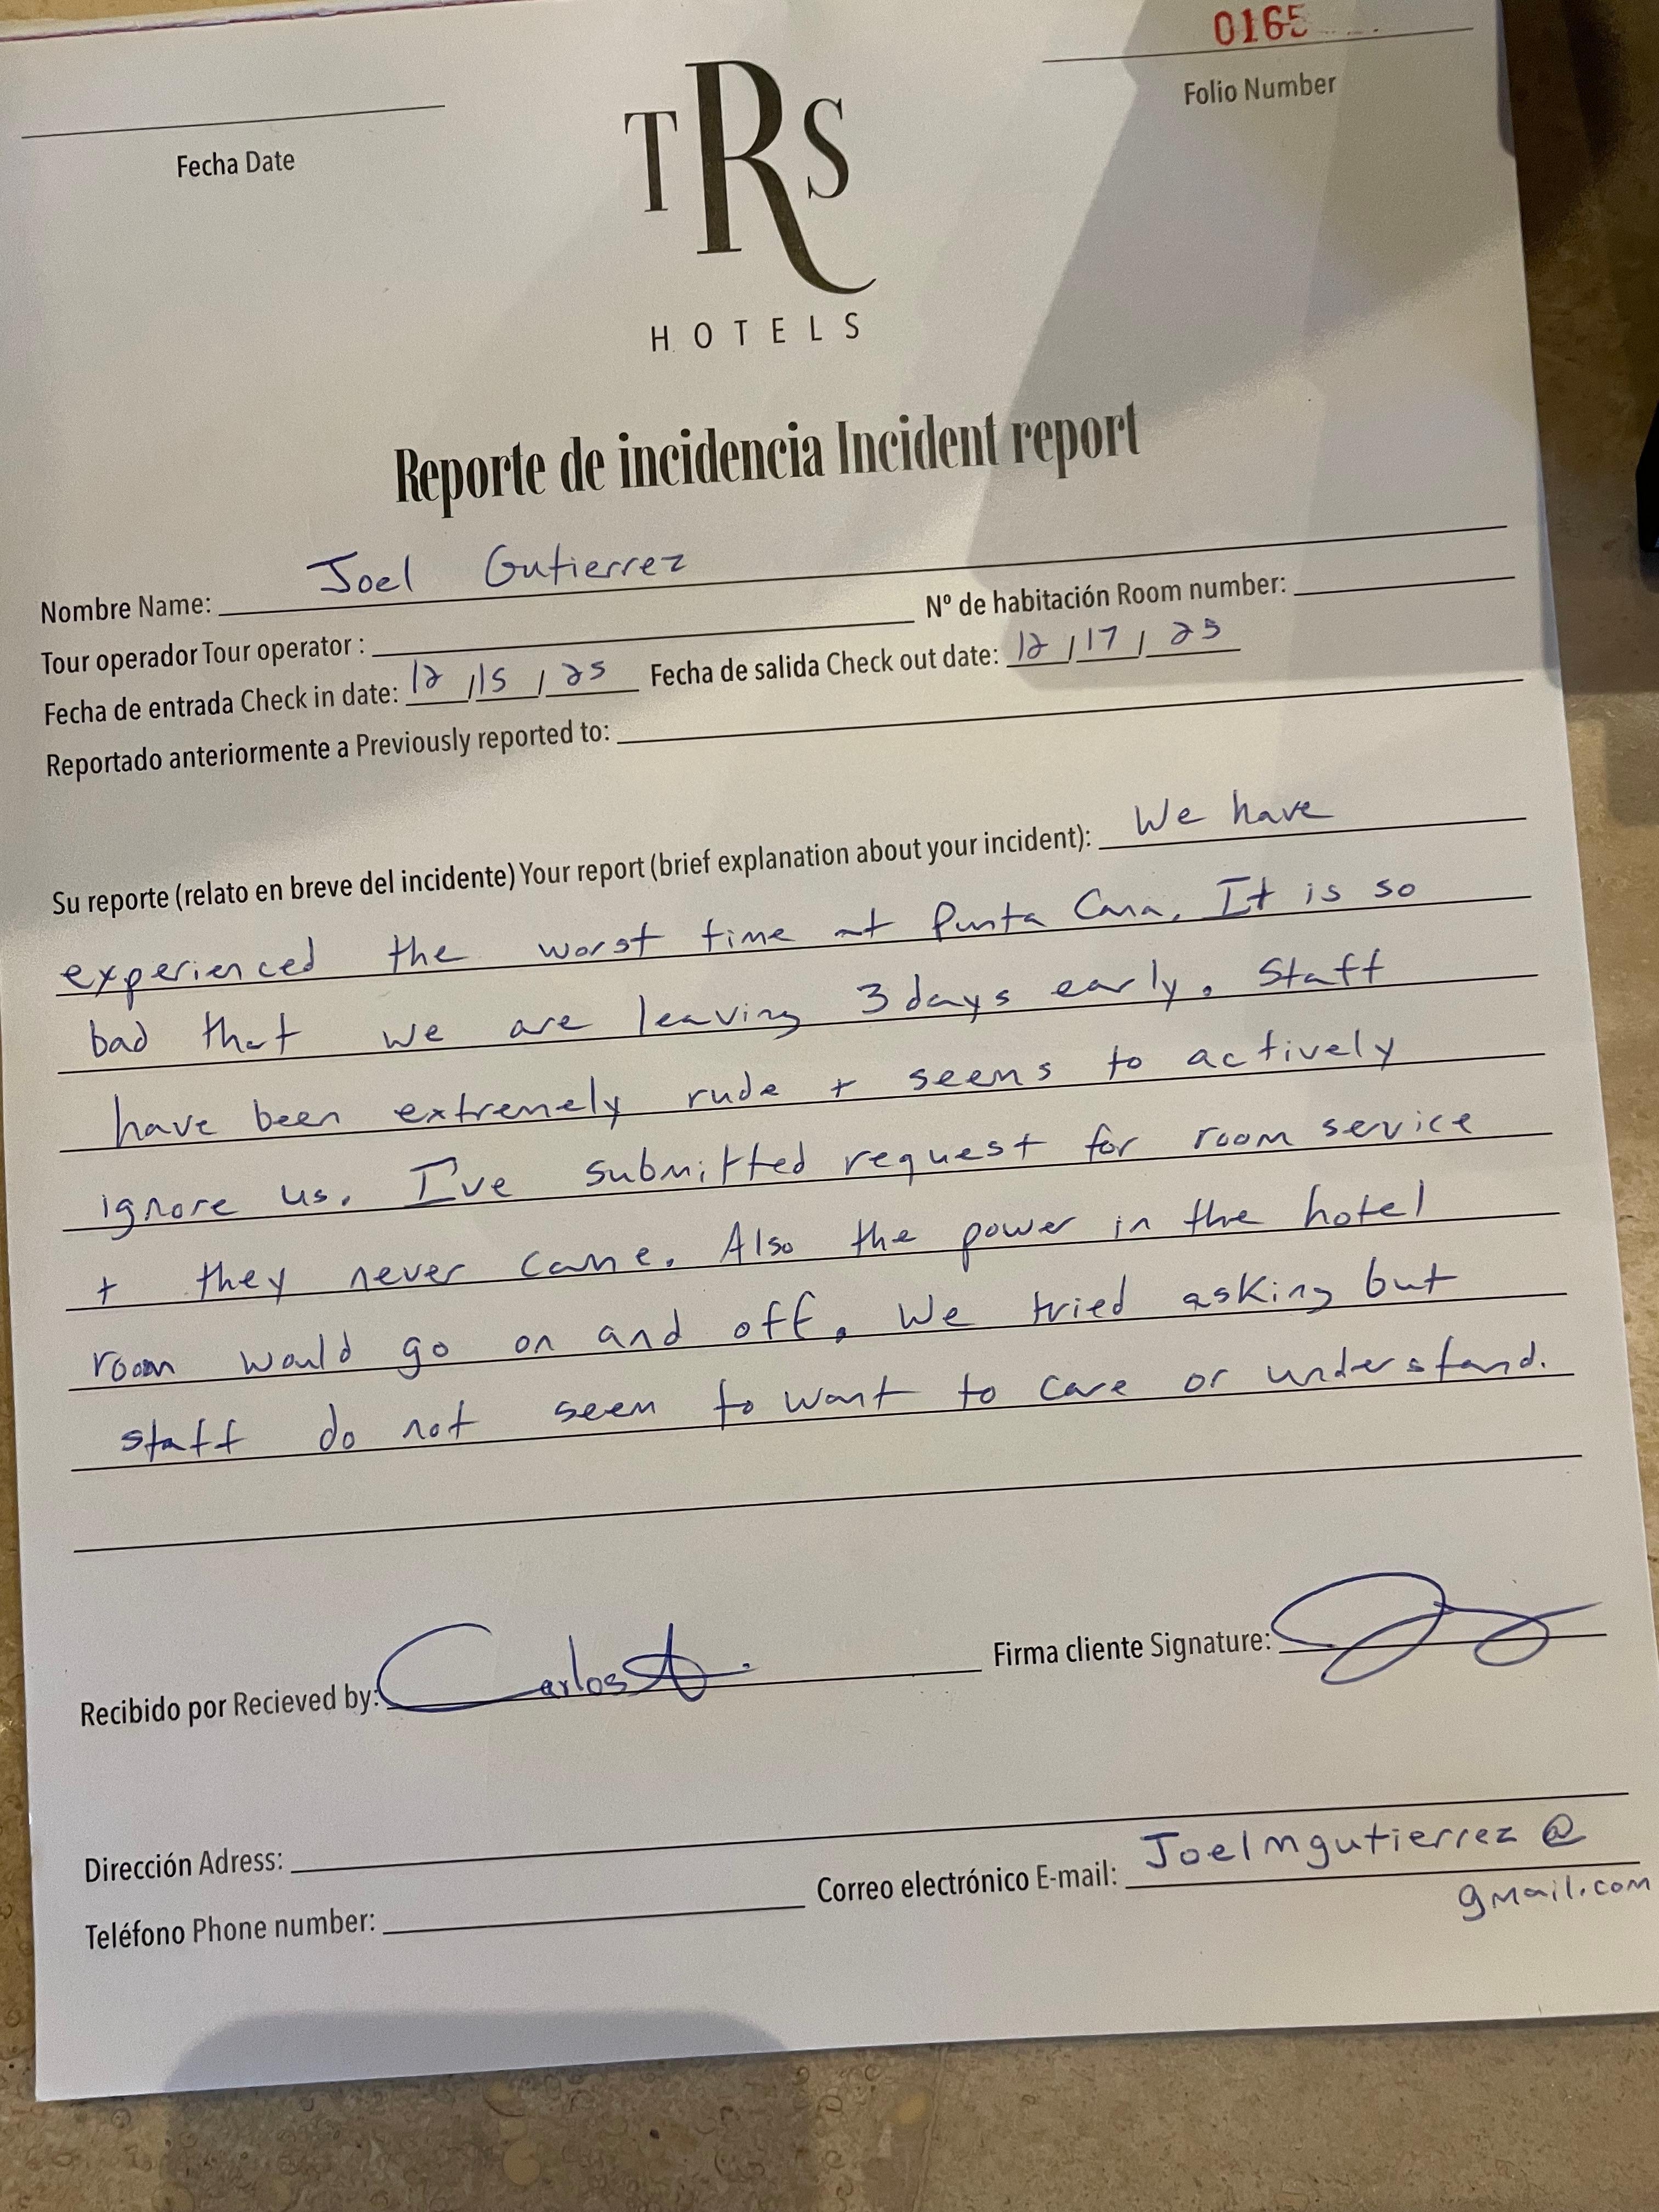 0165
Folio Number
Fecha Date
TRS
HOTELS
Reporte de incidencia Incident report
Nombre Name: Joel Gutierrez
Tour operador Tour operator : Nº de habitación Room number:
Fecha de entrada Check in date: 12/15/25 Fecha de salida Check out date: 12/17/25
Reportado anteriormente a Previously reported to:
Su reporte (relato en breve del incidente) Your report (brief explanation about your incident): We have
experienced the worst time at Punta Cana. It is so
bad that we are leaving 3 days early. Staff
have been extremely rude + seems to actively
ignore us. I've submitted request for room service
+ they never came. Also the power in the hotel
room would go on and off. We tried asking but
staff do not seem to want to care or understand.
Recibido por Recieved by: Carlos A. Firma cliente Signature:
Dirección Adress:
Teléfono Phone number: Correo electrónico E-mail: Joelmgutierrez@
gmail.com